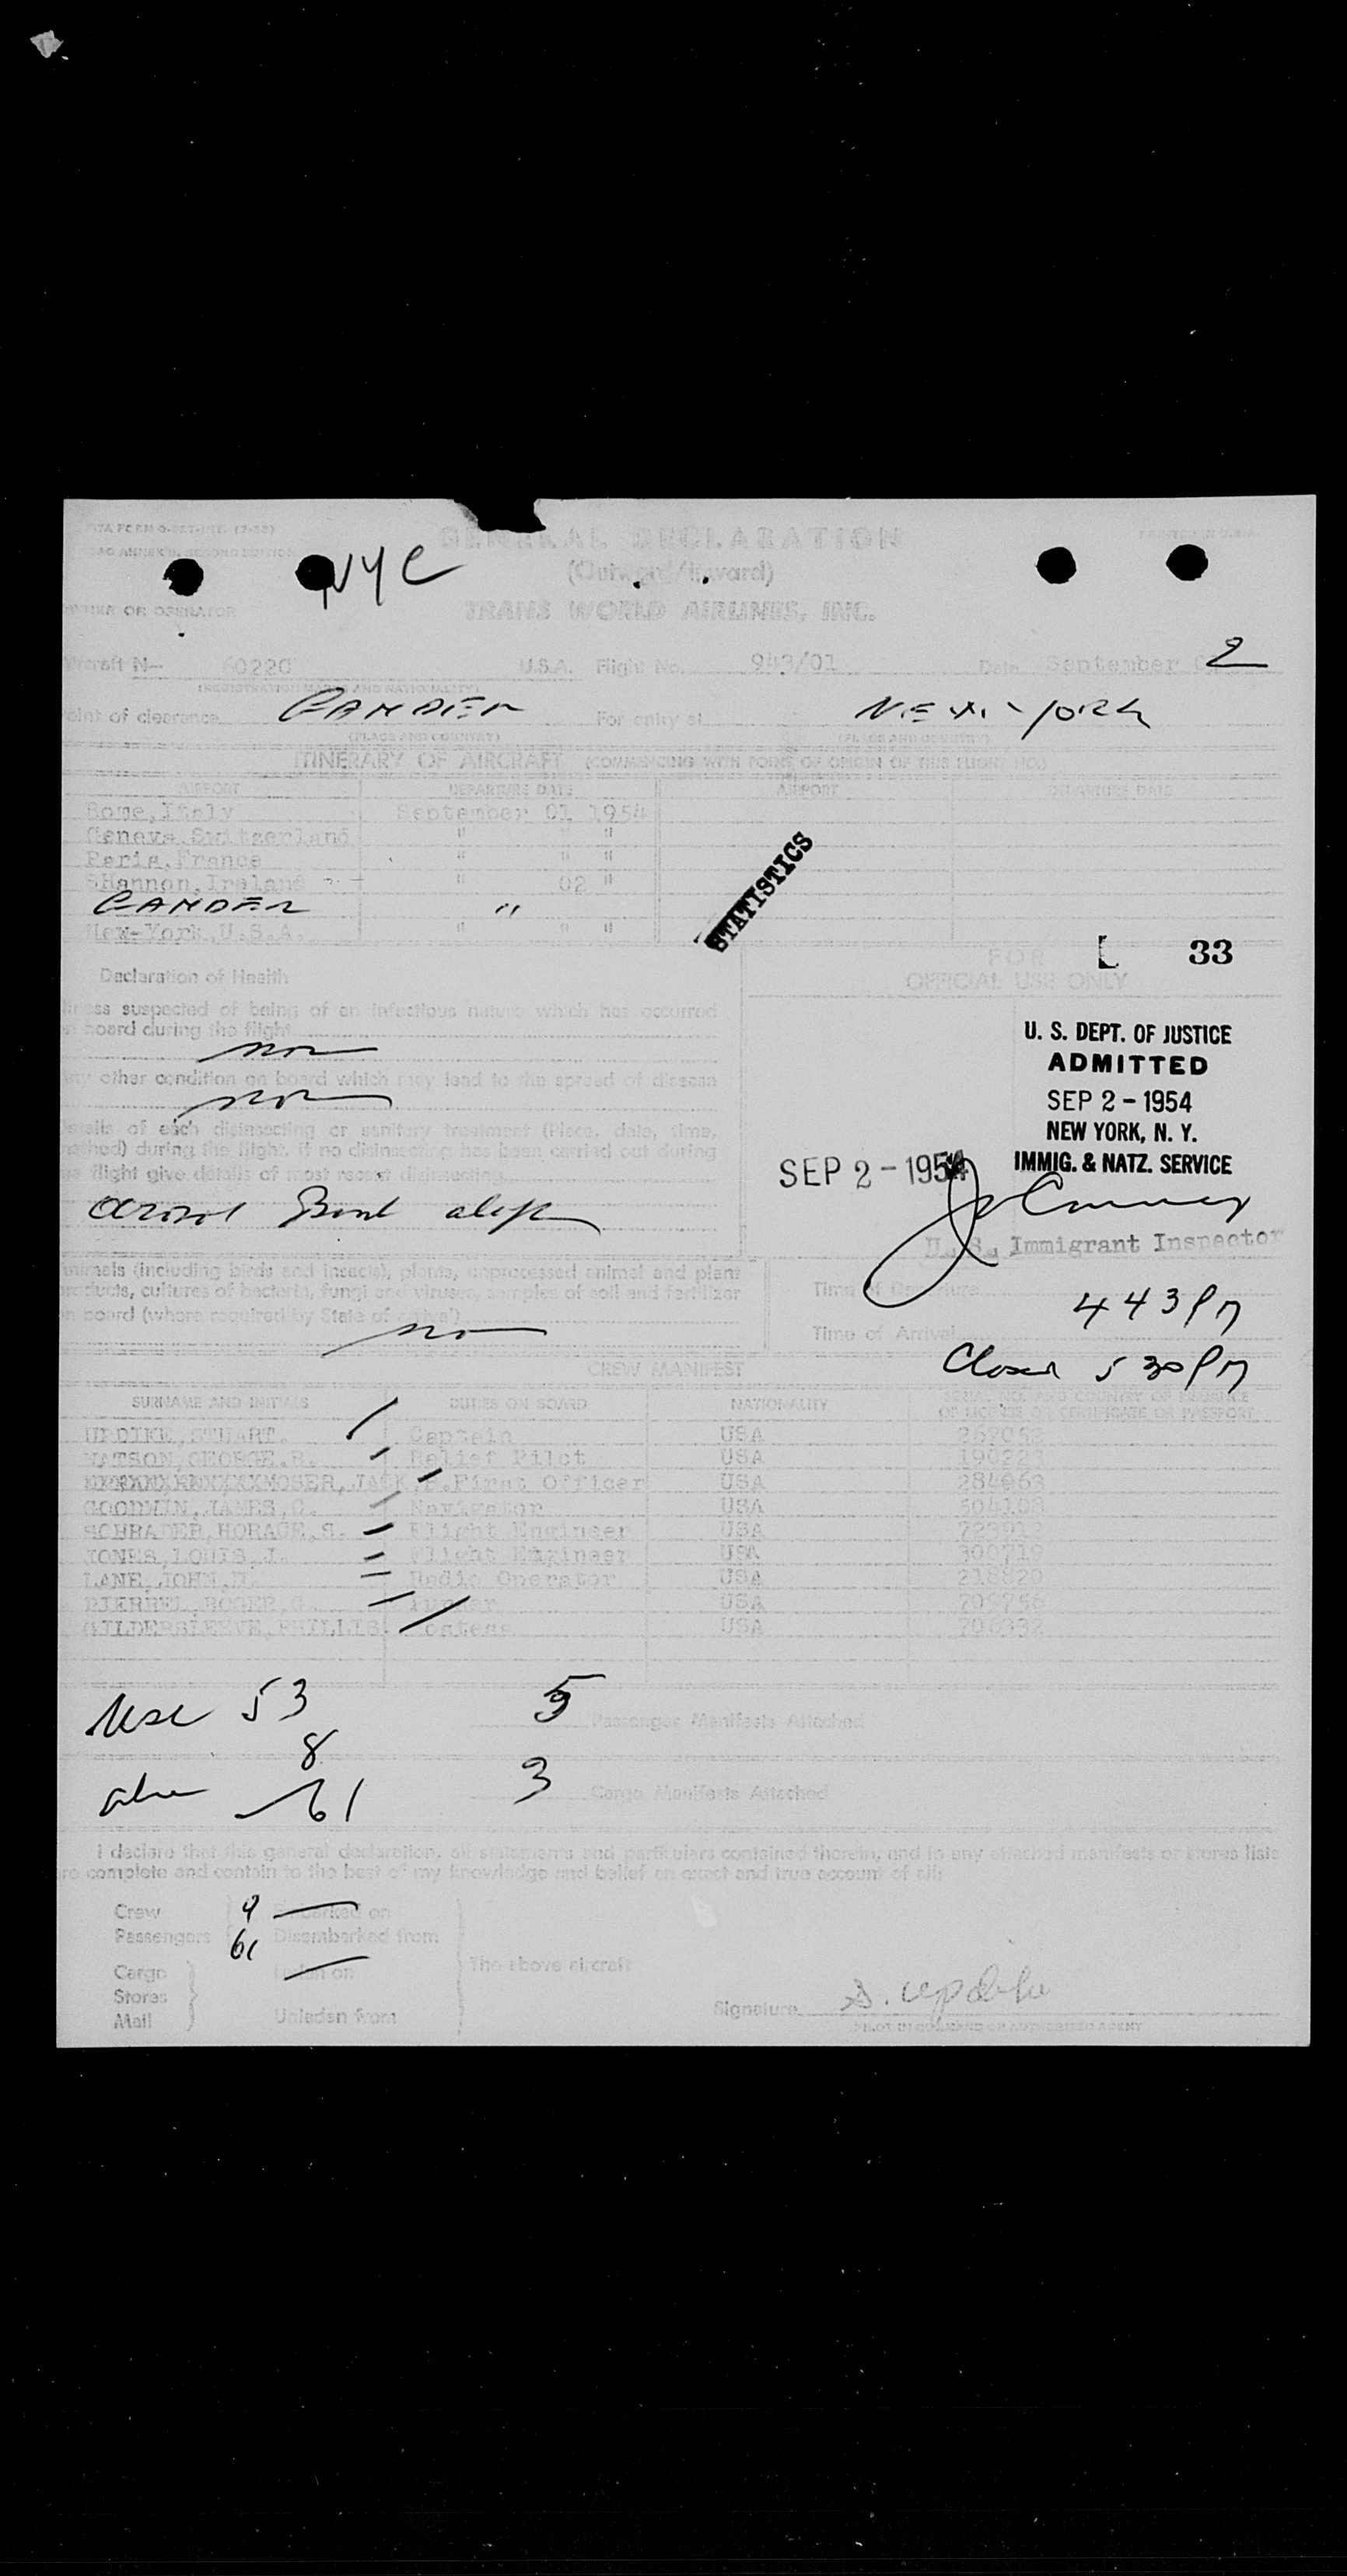 GENERAL DECLARATION
PRINTED IN U.S.A.
NYC
(Outward/Inward)
OWNER OR OPERATOR
TRANS WORLD AIRLINES, INC.
Aircraft N— 6022C U.S.A. Flight No. 943/01 Date September 2
(REGISTRATION MARKS AND NATIONALITY)
Point of clearance GANDER For entry at NEW-YORK
(PLACE AND COUNTRY) (PLACE AND COUNTRY)
ITINERARY OF AIRCRAFT (COMMENCING WITH POINT OF ORIGIN OF THIS FLIGHT NO.)
AIRPORT DEPARTURE DATE AIRPORT DEPARTURE DATE
Rome,Italy September 01 1954
Geneva,Switzerland " " "
Paris,France " " "
SHannon,Ireland " 02 "
GANDER "
New-York,U.S.A. " " "
STATISTICS
FOR L 33
OFFICIAL USE ONLY
Declaration of Health
illness suspected of being of an infectious nature which has occurred
on board during the flight
any other condition on board which may lead to the spread of disease
details of each disinsecting or sanitary treatment (Place, date, time,
method) during the flight. If no disinsecting has been carried out during
the flight give details of most recent disinsecting
U. S. DEPT. OF JUSTICE
ADMITTED
SEP 2 - 1954
NEW YORK, N. Y.
IMMIG. & NATZ. SERVICE
SEP 2 - 1954
U. S. Immigrant Inspector
Animals (including birds and insects), plants, unprocessed animal and plant
products, cultures of bacteria, fungi and viruses, samples of soil and fertilizer
on board (where required by State of arrival)
Time of Departure
443 PM
Time of Arrival
Closed 530 PM
CREW MANIFEST
SURNAME AND INITIALS DUTIES ON BOARD NATIONALITY SERIAL NO. AND COUNTRY OF ISSUANCE
OF LICENSE OR CERTIFICATE OR PASSPORT
UPDIKE,STUART. Captain USA
WATSON,GEORGE.R. Relief Pilot USA
MOSER, JACK, First Officer USA
GOODWIN,JAMES,C. Navigator USA
SCHRADER,HORACE,S. Flight Engineer USA
JONES,LOUIS,J. Flight Engineer USA
LANE,JOHN, Radio Operator USA
PIERREL,ROGER,G. Purser USA
GILDERSLEEVE,PHILLIS. Hostess USA
53 5 Passenger Manifests Attached
8
61 3 Cargo Manifests Attached
I declare that this general declaration, all statements and particulars contained therein, and in any attached manifests or stores lists
are complete and contain to the best of my knowledge and belief an exact and true account of all:
Crew 9 Embarked on
Passengers 61 Disembarked from
Cargo Laden on The above aircraft
Stores
Mail Unladen from
Signature S. Updike
PILOT IN COMMAND OR AUTHORIZED AGENT